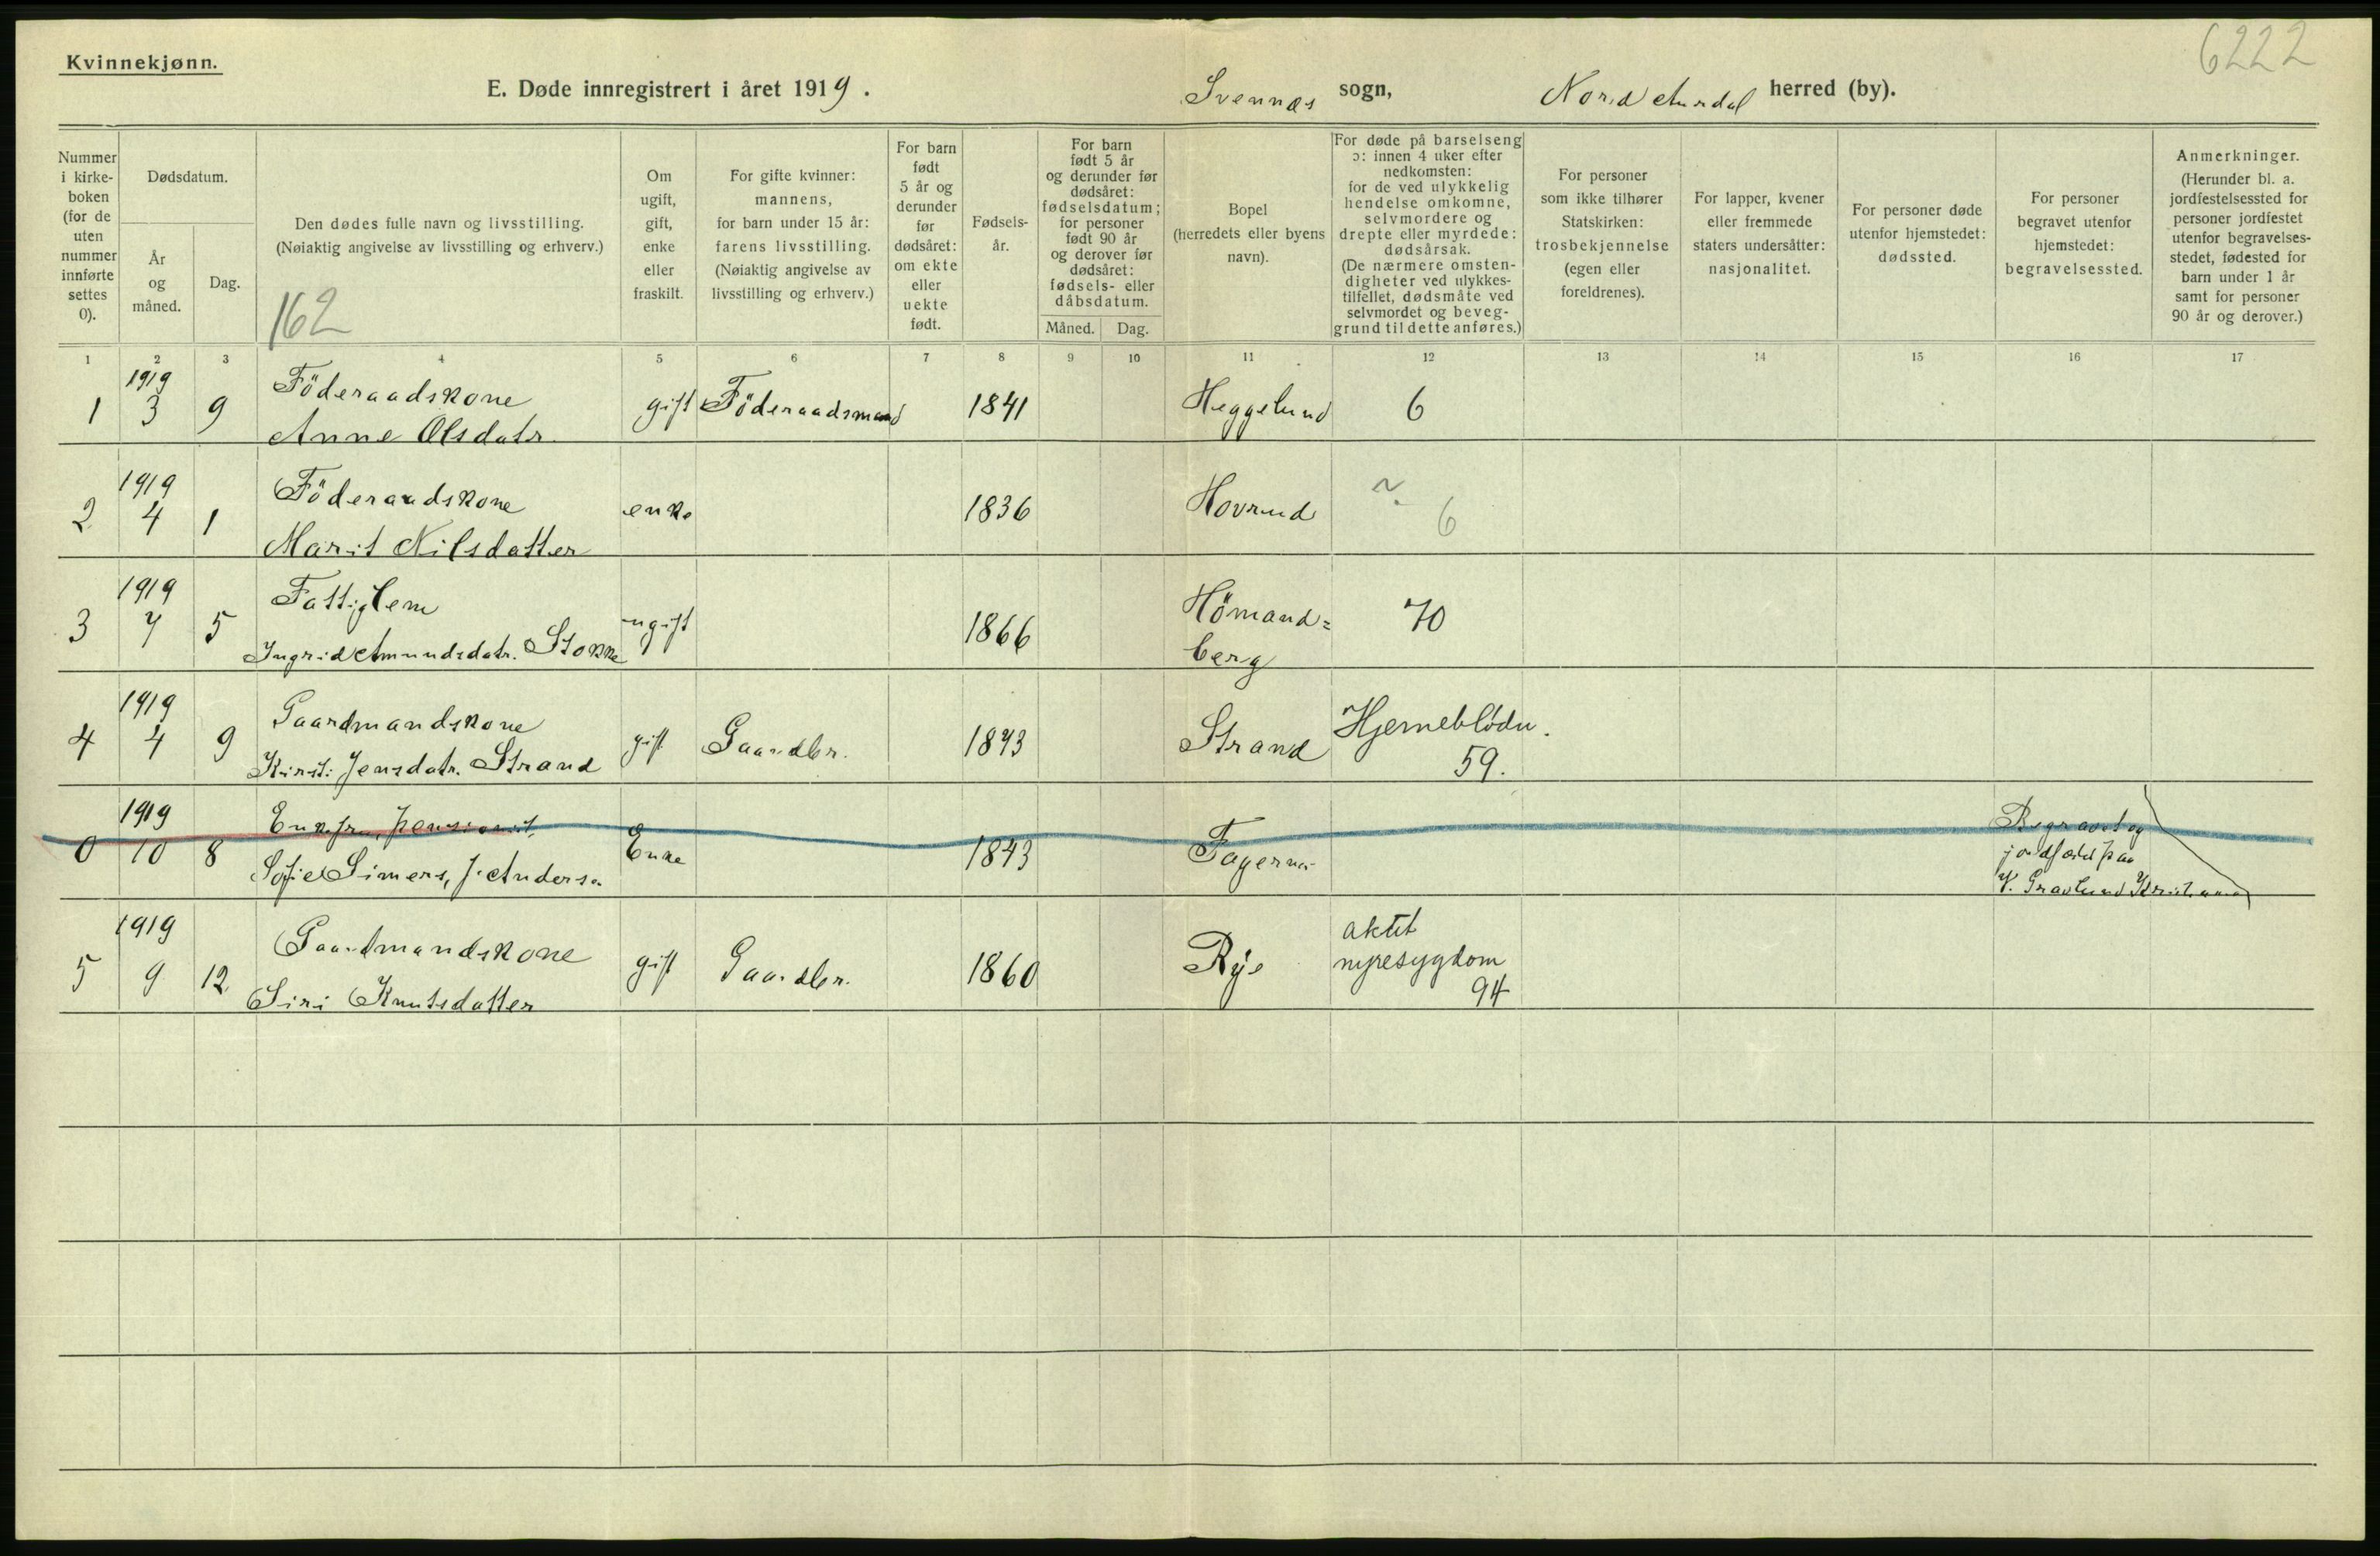 6222
Kvinnekjønn.
E. Døde innregistrert i året 1919. Svennæs sogn, Nord Aurdal herred (by).
Nummer i kirke- boken (for de uten nummer innførte settes 0).
Dødsdatum.
År og måned.
Dag.
Den dødes fulle navn og livsstilling.
(Nøiaktig angivelse av livsstilling og erhverv.)
162
Om ugift, gift, enke eller fraskilt.
For gifte kvinner: mannens, for barn under 15 år: farens livsstilling. (Nøiaktig angivelse av livsstilling og erhverv.)
For barn født 5 år og derunder før dødsåret: om ekte eller uekte født.
Fødsels- år.
For barn født 5 år og derunder før dødsåret: fødselsdatum; for personer født 90 år og derover før dødsåret: fødsels- eller dåbsdatum.
Måned. Dag.
Bopel (herredets eller byens navn).
For døde på barselseng ɔ: innen 4 uker efter nedkomsten: for de ved ulykkelig hendelse omkomne, selvmordere og drepte eller myrdede: dødsårsak. (De nærmere omsten- digheter ved ulykkes- tilfellet, dødsmåte ved selvmordet og beveg- grund til dette anføres.)
For personer som ikke tilhører Statskirken: trosbekjennelse (egen eller foreldrenes).
For lapper, kvener eller fremmede staters undersåtter: nasjonalitet.
For personer døde utenfor hjemstedet: dødssted.
For personer begravet utenfor hjemstedet: begravelsessted.
Anmerkninger. (Herunder bl. a. jordfestelsessted for personer jordfestet utenfor begravelses- stedet, fødested for barn under 1 år samt for personer 90 år og derover.)
1 2 3 4 5 6 7 8 9 10 11 12 13 14 15 16 17
1919 Föderaadskone
1 3 9 gift Föderaadsmand 1841 Heggelund 6
Anne Olsdatr.
1919 Föderaadskone
2 4 1 enke 1836 Hovrud ? 6
Marit Nilsdatter
1919 Fattiglem
3 7 5 ugift 1866 Hömand= 70
Ingrid Amundsdatr. Stokke berg
1919 Gaardmandskone Hjerneblödn.
4 4 9 gift Gaardbr. 1843 Strand
Kirsti Jensdatr. Strand 59.
1919 Enkefru, pensionist, Begravet og
0 10 8 Enke 1843 Fagernæs jordfæstet paa
Sofie Simers, f. Anders. V. Gravlund Kristiania
1919 Gaardmandskone akut
5 9 12 gift Gaardbr. 1860 Rye nyresygdom
Siri Knutsdatter 94